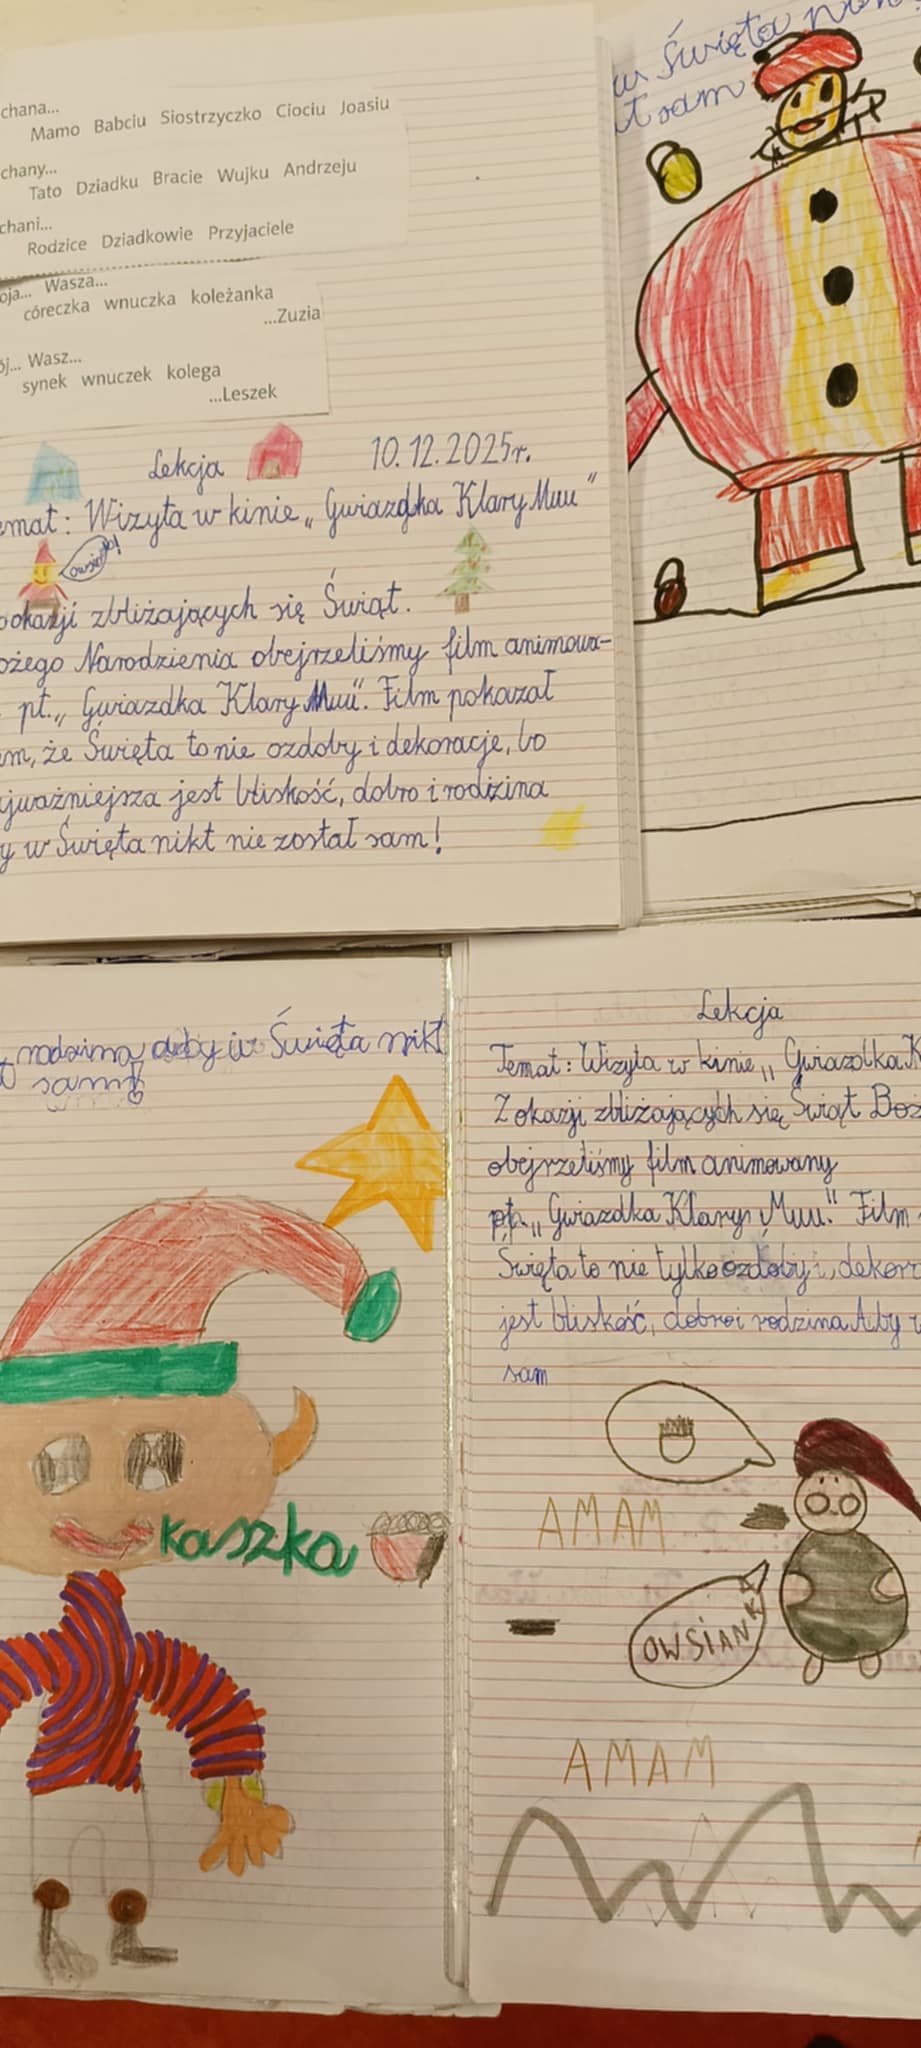 chana...
Mamo Babciu Siostrzyczko Ciociu Joasiu
chany...
Tato Dziadku Bracie Wujku Andrzeju
chani...
Rodzice Dziadkowie Przyjaciele
oja... Wasza...
córeczka wnuczka koleżanka
...Zuzia
ój... Wasz...
synek wnuczek kolega
...Leszek
Lekcja 10.12.2025r.
emat: Wizyta w kinie „Gwiazdka Klary Muu"
okazji zbliżających się Świąt.
ożego Narodzenia obejrzeliśmy film animowa-
pt. „Gwiazdka Klary Muu". Film pokazał
em, że Święta to nie ozdoby i dekoracje, bo
jważniejsza jest bliskość, dobro i rodzina
y w Święta nikt nie został sam!
w Święta
ł sam
rodzina aby w Święta nikt
sam!
Lekcja
Temat: Wizyta w kinie „Gwiazdka K
Z okazji zbliżających się Świąt Boż
obejrzeliśmy film animowany
pt. „Gwiazdka Klary Muu." Film
Święta to nie tylko ozdoby i, dekor
jest bliskość, dobro i rodzina Aby w
sam
AMAM
kaszka
OWSIANKA
AMAM